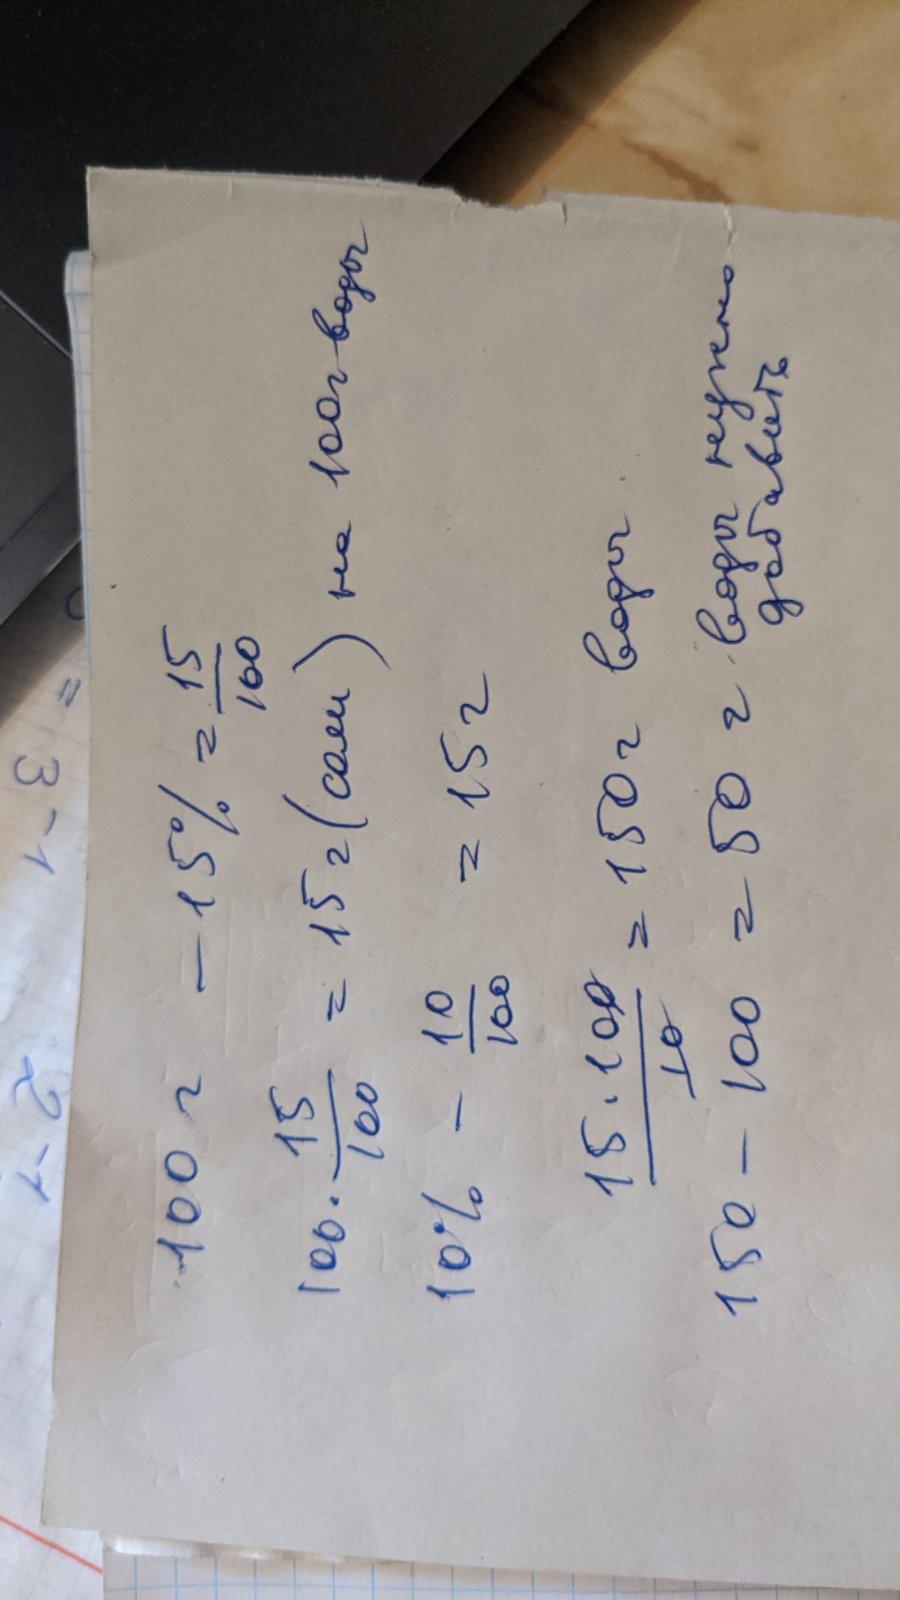 100 г – 15% = 15/100
100 · 15/100 = 15 г (соли) на 100 г воды
10% – 10/100 = 15 г
15 · 100/10 = 150 г воды
150 – 100 = 50 г воды нужно
добавить